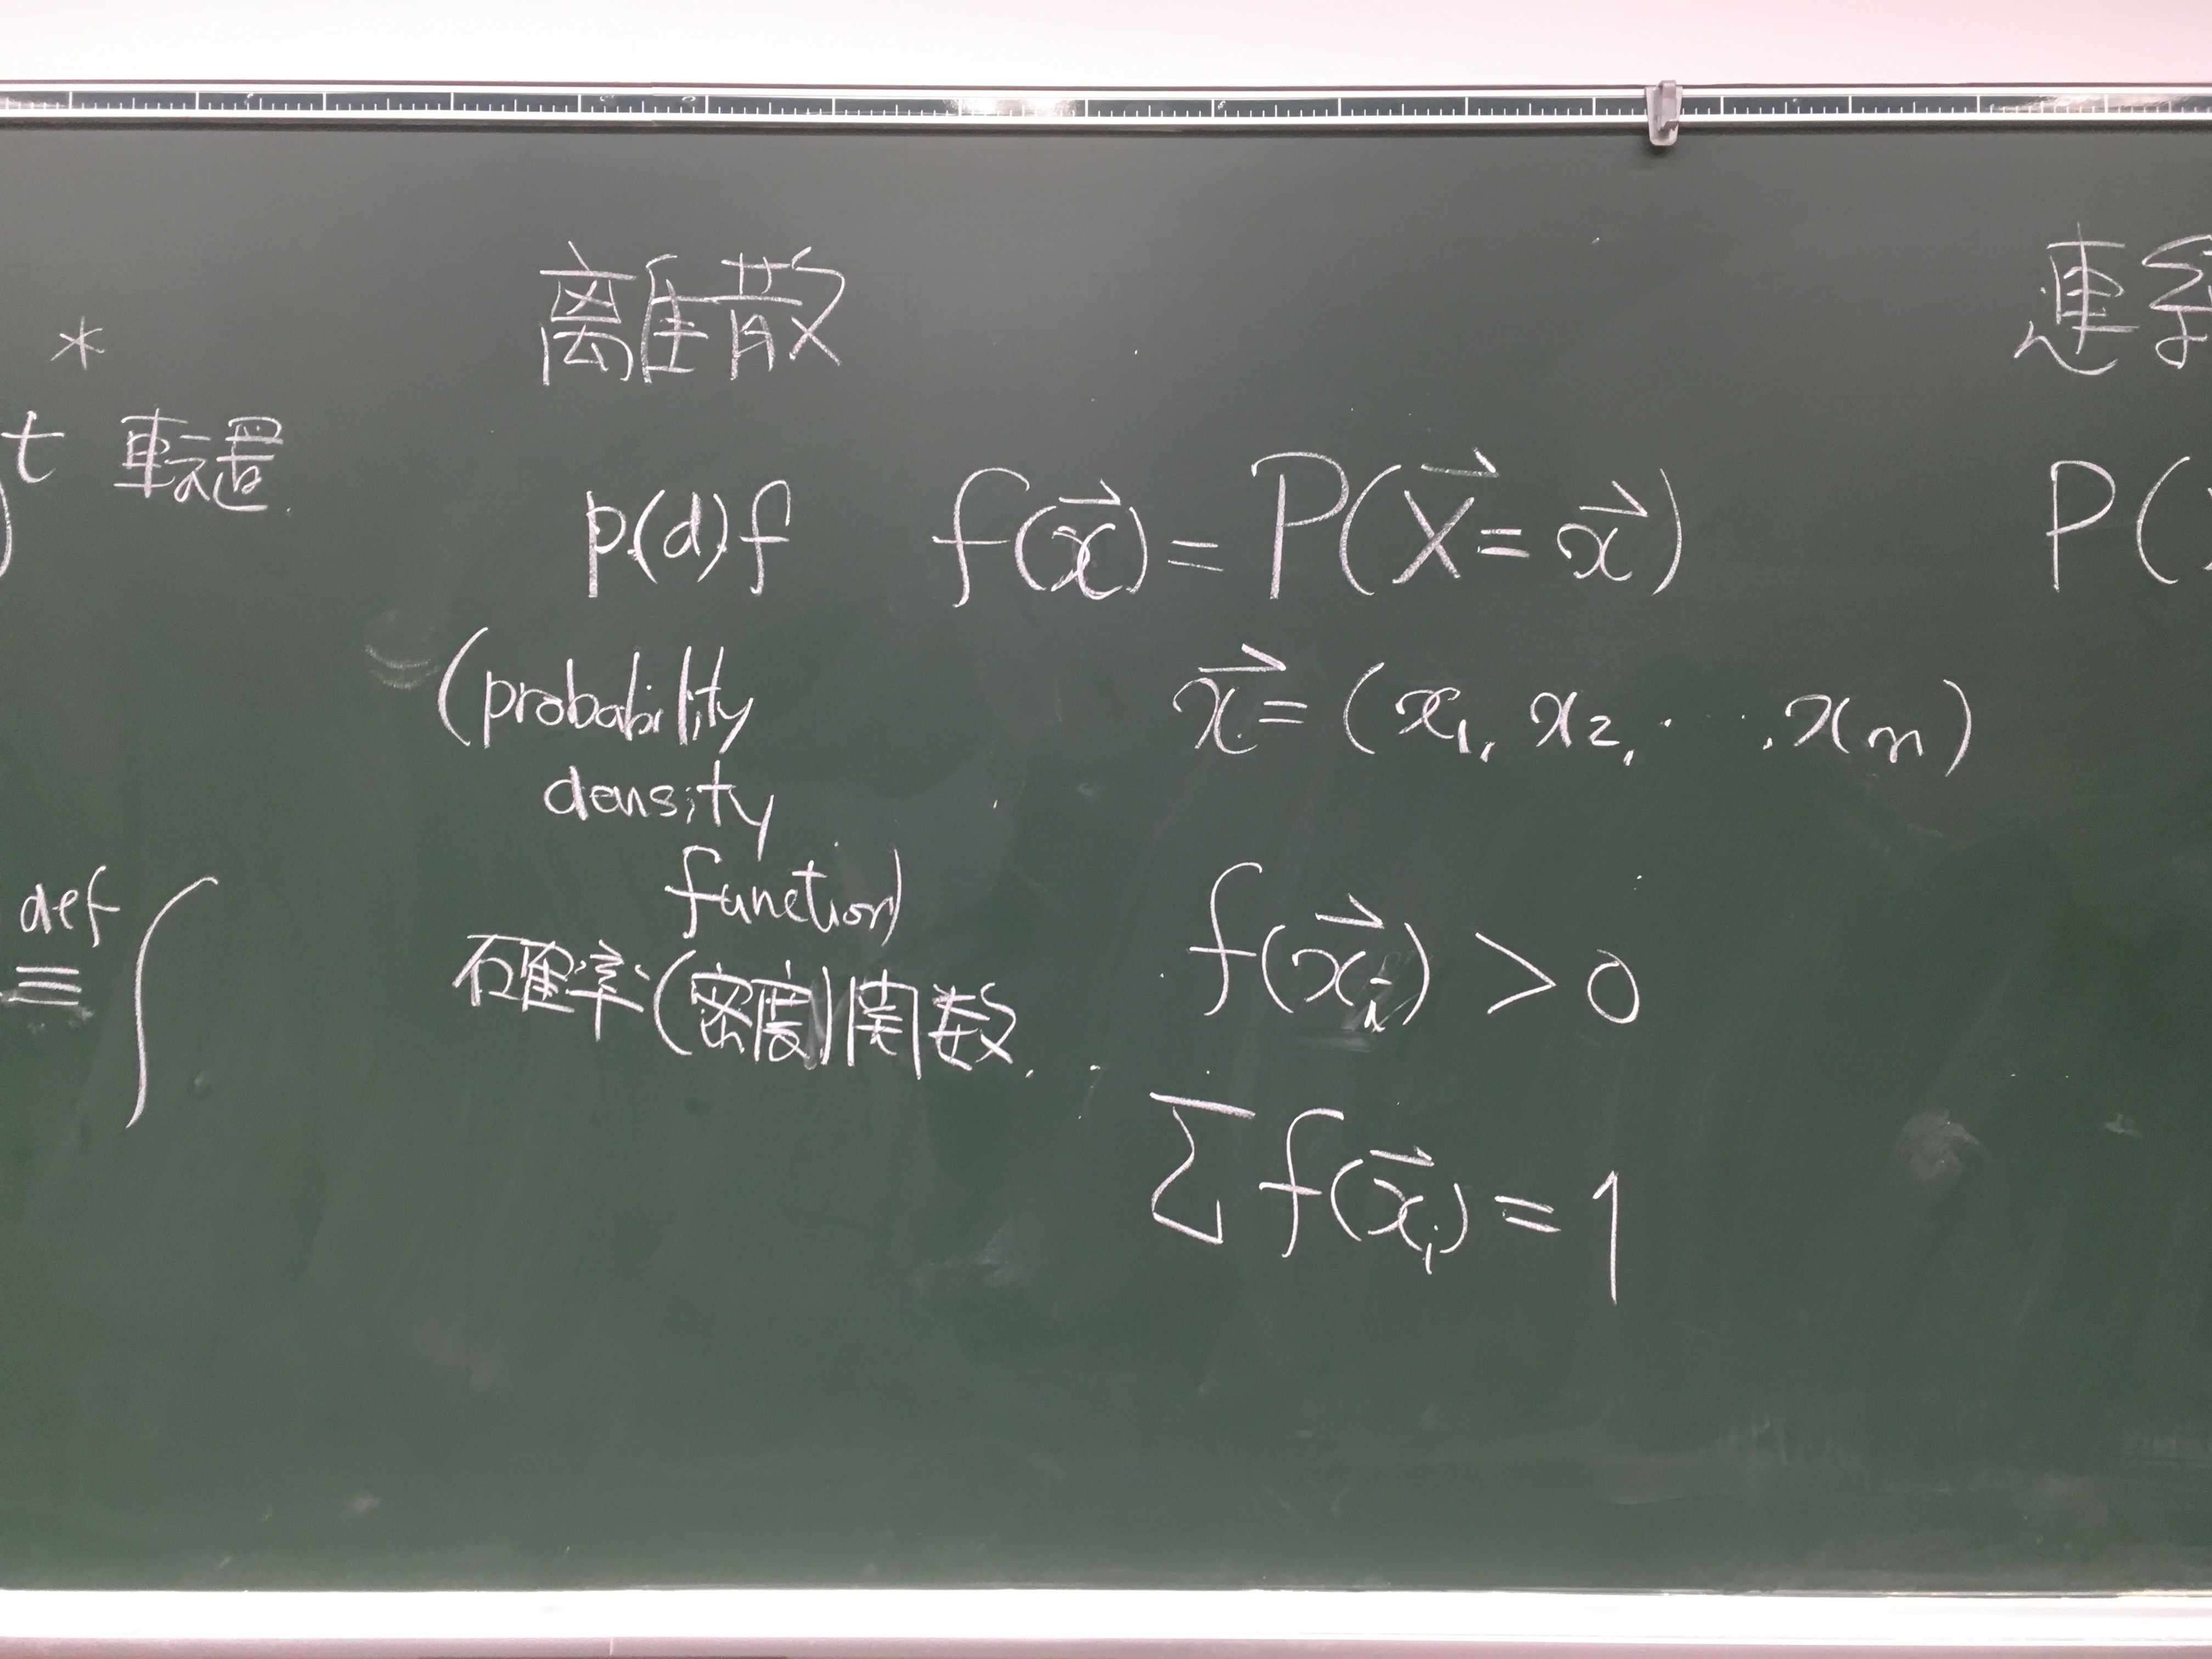 *
t 転置
離散
p(d)f
(probability
density
function)
確率(密度)関数.
f(x⃗) = P(X⃗ = x⃗)
x⃗ = (x₁, x₂, ‥, xₘ)
f(x⃗ᵢ) > 0
Σf(x⃗ᵢ) = 1
def
≡ ∫
連続
P(